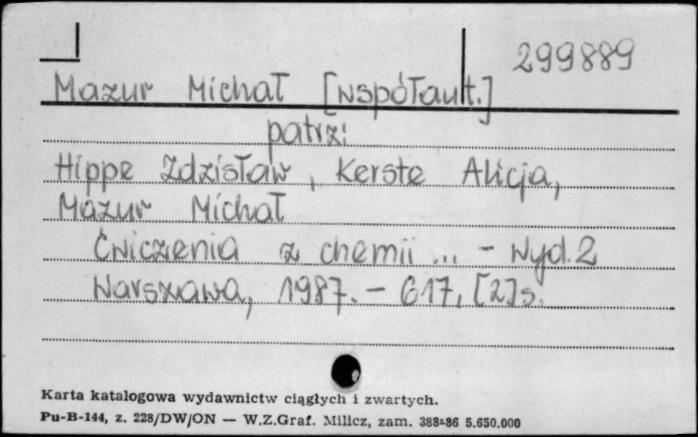 299889
Mazur Michał [współaut.]
patrz:
Hippe Zdzisław, Kerste Alicja,
Mazur Michał
Ćwiczenia z chemii ... - Wyd. 2
Warszawa, 1987. - 617, [2] s.
Karta katalogowa wydawnictw ciągłych i zwartych.
Pu-B-144, z. 228/DW/ON — W.Z.Graf. Milicz, zam. 388-86 5.650.000